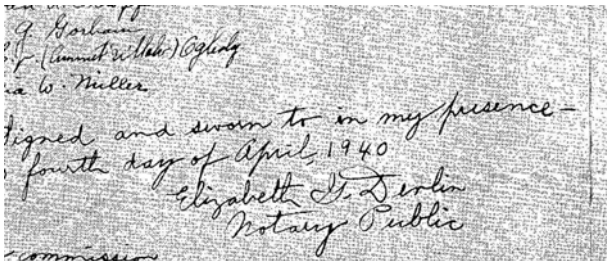 G. Gorham
Oglesby
W. Miller
signed and sworn to in my presence —
fourth day of April, 1940
Elizabeth G. Devlin
Notary Public
commission